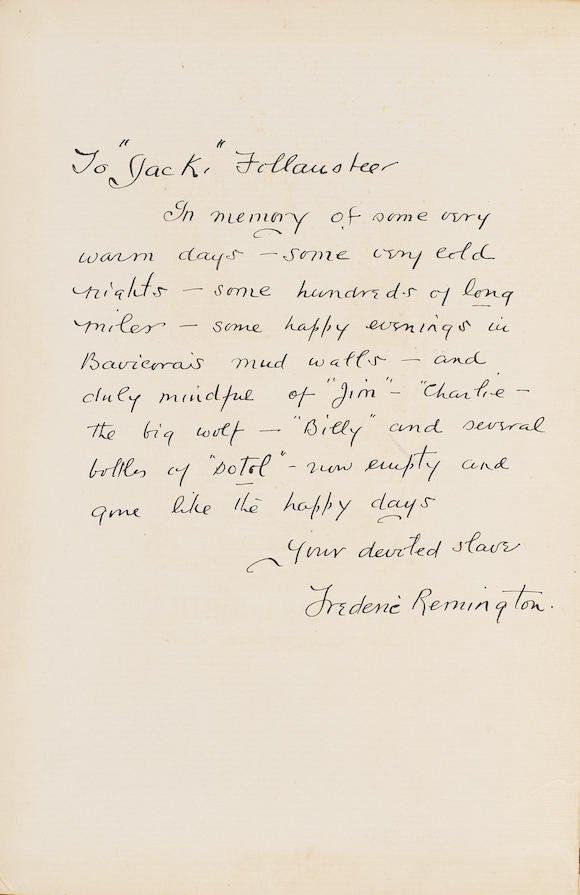 To "Jack," Follansbee
In memory of some very
warm days — some very cold
nights — some hundreds of long
miles — some happy evenings in
Bavicora's mud walls — and
duly mindful of "Jim" - "Charlie -
the big wolf — "Billy" and several
bottles of "sotol" - now empty and
gone like the happy days
Your devoted slave
Frederic Remington.